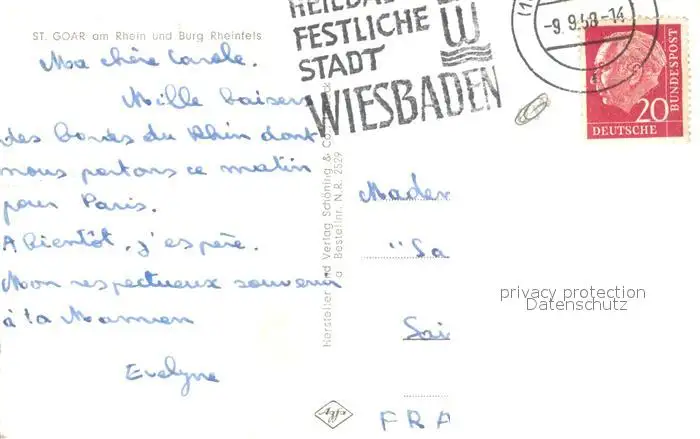 ST. GOAR am Rhein und Burg Rheinfels
Ma chère Carole.
Mille baisers
des bords du Rhin dont
nous partons ce matin
pour Paris.
A bientôt, j'espère.
Mon respectueux souvenir
à la Maman
Evelyne
FESTLICHE
STADT
WIESBADEN
-9.9.58-14
20
DEUTSCHE
BUNDESPOST
Hersteller und Verlag Schöning & Co.
Bestellnr. N.R. 2529
Madem
"Sa
Sai
FRA
Agfa
privacy protection
Datenschutz